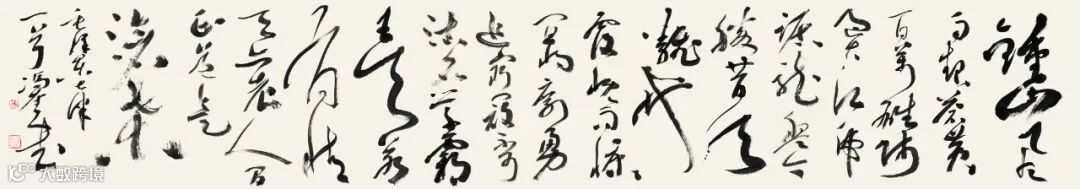 钟山风
雨起苍黄
百万雄师
过大江虎
踞龙盘今
胜昔天
翻地
覆慨而慷
宜将剩勇
追穷寇不可
沽名学霸
王天若
有情
天亦老人间
正道是
沧桑
毛泽东七律
大数跨境